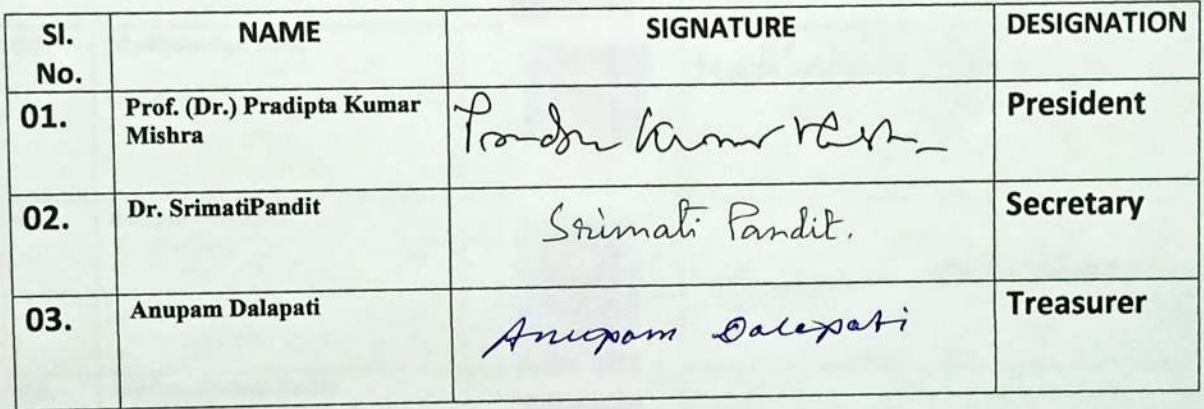 Sl. No.
NAME
SIGNATURE
DESIGNATION
01.
Prof. (Dr.) Pradipta Kumar
Mishra
Kumar
President
02.
Dr. SrimatiPandit
Srimati Pandit.
Secretary
03.
Anupam Dalapati
Anupam Dalapati
Treasurer